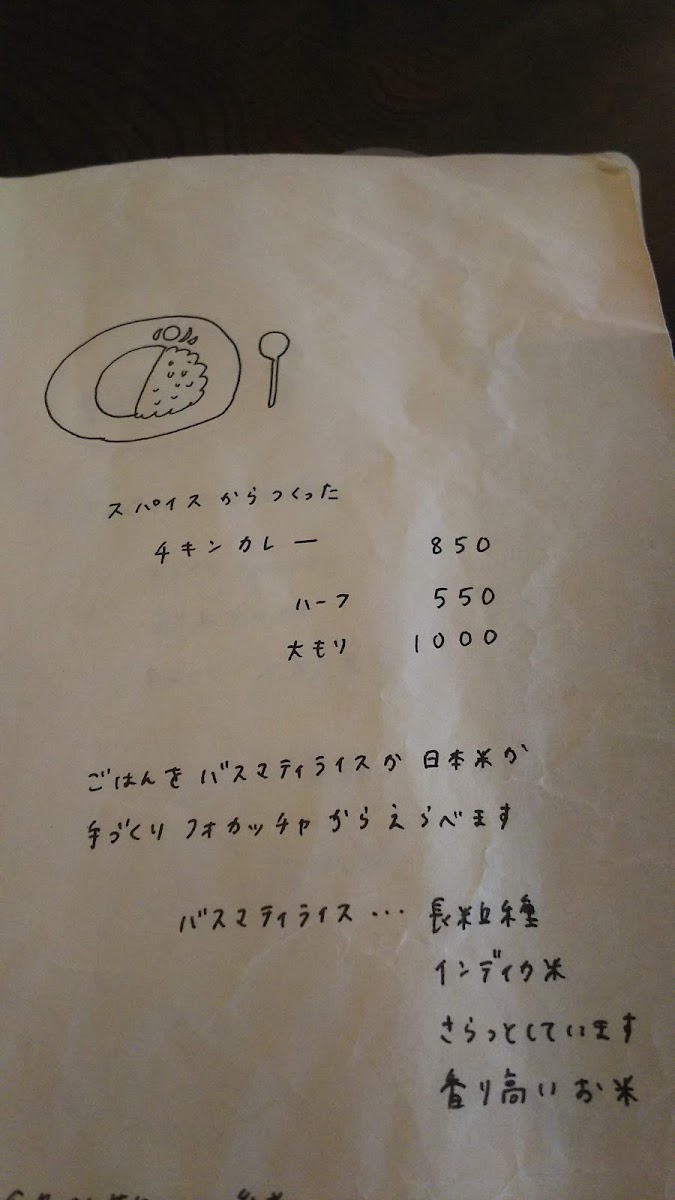 スパイスからつくった
チキンカレー 850
ハーフ 550
大もり 1000
ごはんを バスマティライスか 日本米か
手づくり フォカッチャ からえらべます
バスマティライス... 長粒種
インディカ米
さらっとしています
香り高いお米